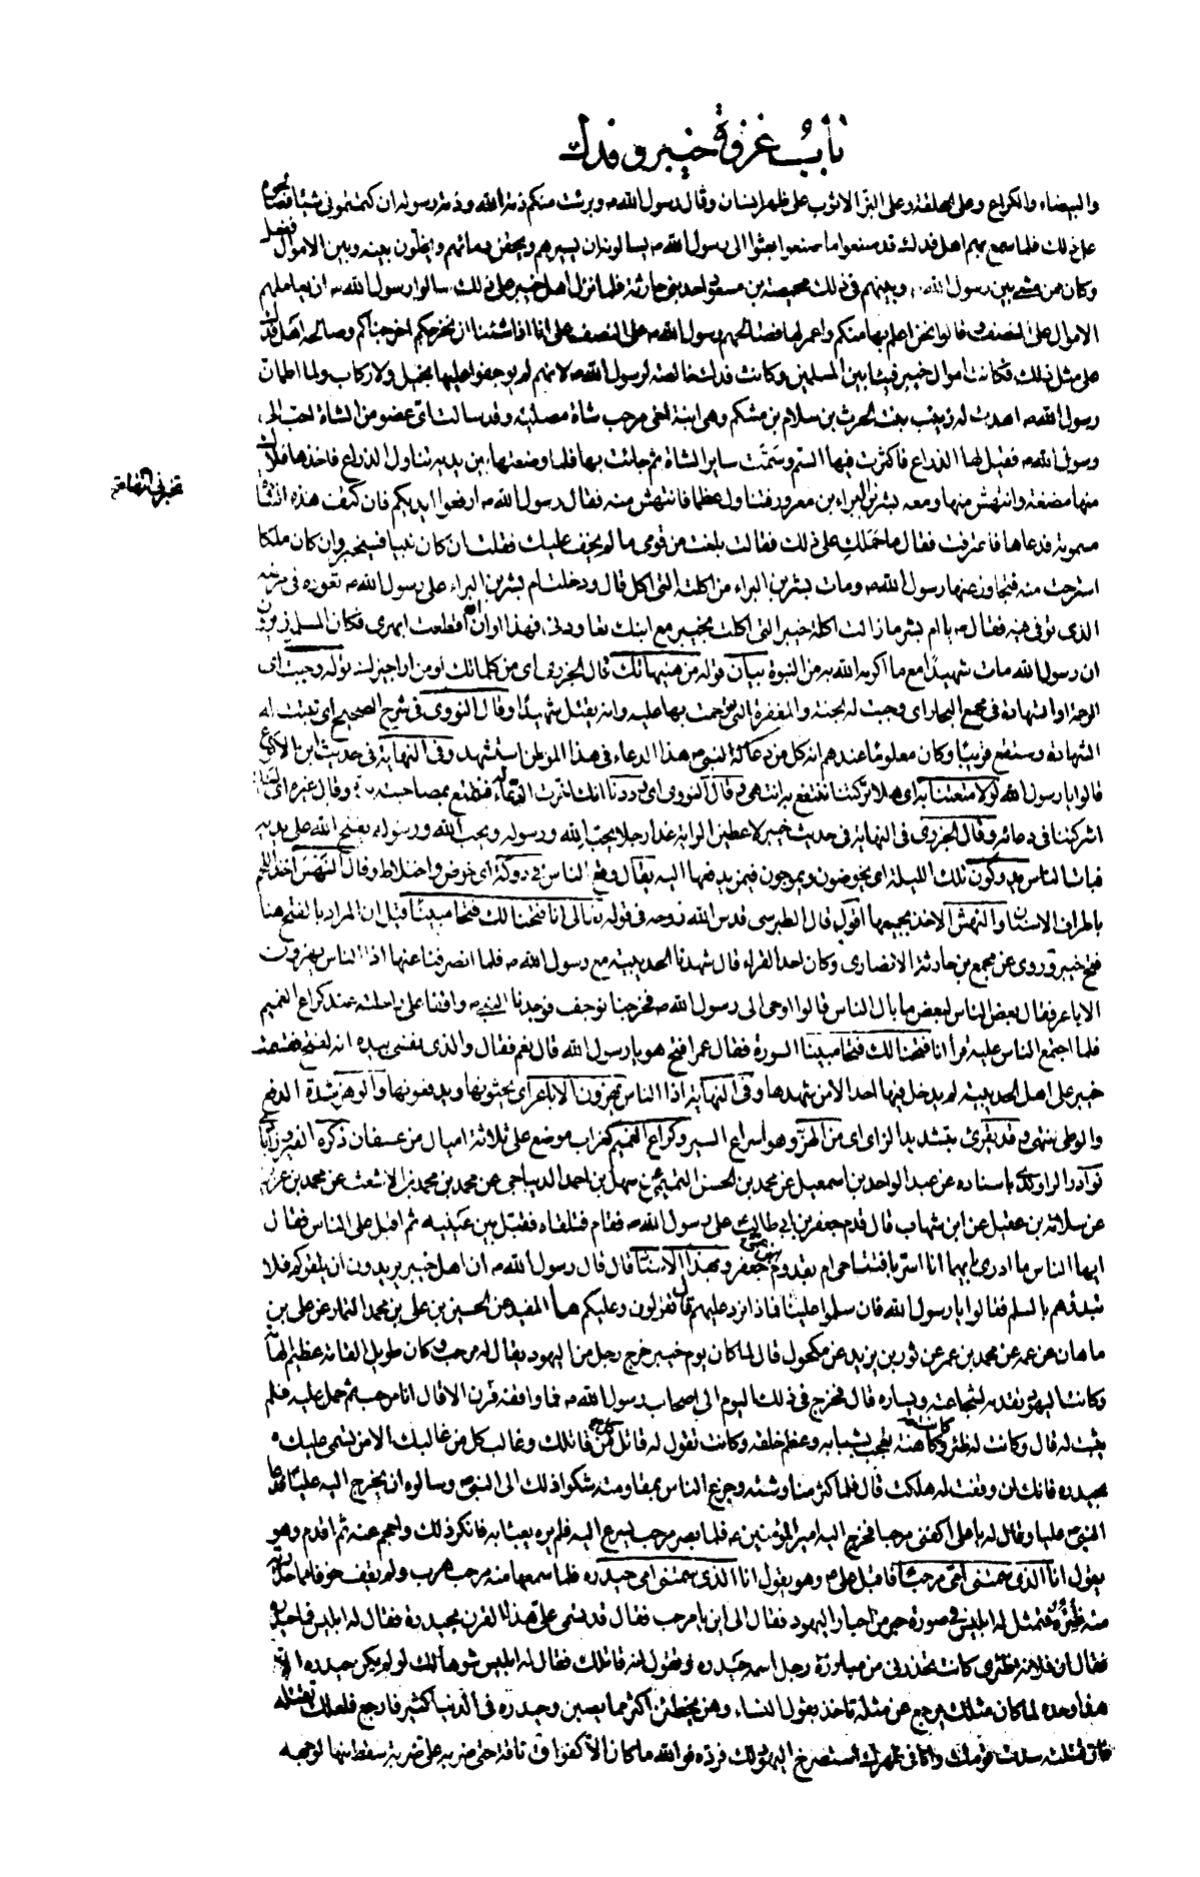 باب غزوة خيبر و فدك
والبيضاء والكراع وعلى الحلقة وعلى البز الا ثوب على ظهر انسان وقال رسول الله ص وبرئت منكم ذمة الله وذمة رسوله ان كتمتموني شيئا فصالحوه
على ذلك فلما سمع بهم اهل فدك قد صنعوا ما صنعوا بعثوا الى رسول الله ص يسالونه ان يسيرهم ويحقن دمائهم ويخلون بينه وبين الاموال ففعل
وكان ممن مشى بين رسول الله ص وبينهم في ذلك محيصة بن مسعود احد بني حارثة فلما نزل اهل خيبر على ذلك سالوا رسول الله ص ان يعاملهم
الاموال على النصف وقالوا نحن اعلم بها منكم واعمر لها فصالحهم رسول الله ص على النصف على انا اذا شئنا ان نخرجكم اخرجناكم وصالحه اهل فدك
على مثل ذلك فكانت اموال خيبر فيئا بين المسلمين وكانت فدك خالصة لرسول الله ص لانهم لم يوجفوا عليها بخيل ولا ركاب ولما اطمان
رسول الله ص اهدت له زينب بنت الحرث بن سلام بن مشكم وهي ابنة اخي مرحب شاة مصلية وقد سالت اي عضو من الشاة احب الى
رسول الله ص فقيل لها الذراع فاكثرت فيها السم وسمت ساير الشاة ثم جائت بها فلما وضعتها بين يديه تناول الذراع فاخذها فلاك
منها مضغة وانتهش منها ومعه بشر بن البراء بن معرور فتناول عظما فانتهش منه فقال رسول الله ص ارفعوا ايديكم فان كتف هذه الشاة
مسمومة فدعاها فاعترفت فقال ما حملك على ذلك فقالت بلغت من قومي ما لم يخف عليك فقلت ان كان نبيا فسيخبر وان كان ملكا
استرحت منه فتجاوز عنها رسول الله ص ومات بشر بن البراء من اكلته التي اكل قال ودخلت ام بشر بن البراء على رسول الله ص تعوده في مرضه
الذي توفي فيه فقال ص يا ام بشر ما زالت اكلة خيبر التي اكلت بخيبر مع ابنك تعاودني فهذا اوان قطعت ابهري فكان المسلمون يرون
ان رسول الله مات شهيدا مع ما اكرمه الله به من النبوة بيان قوله من هنيهاتك قال الجزري اي من كلماتك او من اراجيزك قوله وجبت اي
الرحمة او الشهادة في مجمع البحار اي وجبت له الجنة والمغفرة التي ترحمت بها عليه وانه يقتل شهيدا وقال النووي في شرح الصحيح اي ثبتت له
الشهادة وستقع قريبا وكان معلوما عندهم انه كل من دعا له النبي ص هذا الدعاء في هذا الموطن استشهد وفي النهاية في حديث ابن الاكوع
قالوا يا رسول الله لولا متعتنا به اي هلا تركتنا ننتفع به انتهى وقال النووي اي وددنا انك اخرت الدعاء له فنتمتع بمصاحبته وقال غيره اي ليتك
اشركتنا في دعائه وقال الجزري في النهاية في حديث خيبر لاعطين الراية غدا رجلا يحب الله ورسوله ويحبه الله ورسوله يفتح الله على يديه
فبات الناس يدوكون تلك الليلة اي يخوضون ويموجون فيمن يدفعها اليه يقال وقع الناس في دوكة اي خوض واختلاط وقال النهس اخذ اللحم
باطراف الاسنان والنهش الاخذ بجميعها اقول قال الطبرسي قدس الله روحه في قوله تعالى انا فتحنا لك فتحا مبينا قيل ان المراد بالفتح هنا
فتح خيبر وروي عن مجمع بن حارثة الانصاري وكان احد القراء قال شهدنا الحديبية مع رسول الله ص فلما انصرفنا عنها اذا الناس يهزون
الاباعر فقال بعض الناس لبعض ما بال الناس قالوا اوحي الى رسول الله ص فخرجنا نوجف فوجدنا النبي ص واقفا على راحلته عند كراع الغميم
فلما اجتمع الناس عليه قرأ انا فتحنا لك فتحا مبينا السورة فقال عمر افتح هو يا رسول الله قال نعم فقال والذي نفسي بيده انه لفتح فقسمت
خيبر على اهل الحديبية لم يدخل فيها احد الا من شهدها وفي النهاية اذا الناس يهزون الاباعر اي يحثونها ويدفعونها والوهز شدة الدفع
والوطى انتهى وقد يقرئ بتشديد الزاي اي من الهز وهو اسراع السير وكراع الغميم كغراب موضع على ثلاثة اميال من عسفان ذكره الفيروزآبادي
نوادر الراوندي باسناده عن عبد الواحد بن اسمعيل عن محمد بن الحسن التميمي عن سهل بن احمد الديباجي عن محمد بن محمد بن الاشعث عن محمد بن عزيز
عن سلامة بن عقيل عن ابن شهاب قال قدم جعفر بن ابي طالب على رسول الله ص فقام فتلقاه فقبل بين عينيه ثم اقبل على الناس فقال
ايها الناس ما ادري بايهما انا اسر بافتتاحي خيبر ام بقدوم ابن عمي جعفر وبهذا الاسناد قال قال رسول الله ص ان اهل خيبر يريدون ان يلقوكم فلا
تبدؤهم بالسلم فقالوا يا رسول الله فان سلموا علينا فماذا نرد عليهم قال تقولون وعليكم ما المفيد عن الحسين بن علي بن محمد التمار عن علي بن
ماهان عن عمه عن محمد بن عمر عن ثور بن يزيد عن مكحول قال لما كان يوم خيبر خرج رجل من اليهود يقال له مرحب وكان طويل القامة عظيم الهامة
وكانت اليهود تقدمه لشجاعته ويساره قال فخرج في ذلك اليوم الى اصحاب رسول الله ص فما واقفه قرن الا قال انا مرحب ثم حمل عليه فلم
يثبت له قال وكانت له ظئر وكانت كاهنة تعجب بشبابه وعظم خلقه وكانت تقول له قاتل كل من قاتلك وغالب كل من غالبك الا من تسمى عليك
بحيدرة فانك ان وقفت له هلكت قال فلما كثر مناوشته وجزع الناس بمقاومته شكوا ذلك الى النبي ص وسالوه ان يخرج اليه عليا فدعا
النبي ص عليا وقال له يا علي اكفني مرحبا فخرج اليه امير المؤمنين ع فلما بصر به مرحب يسرع اليه فلم يره يعبأ به فانكر ذلك واحجم عنه ثم اقدم وهو
يقول انا الذي سمتني امي مرحبا فاقبل علي ع وهو يقول انا الذي سمتني امي حيدرة فلما سمعها منه مرحب هرب ولم يقف خوفا مما حذرته
منه ظئره فتمثل له ابليس في صورة حبر من احبار اليهود فقال الى اين يا مرحب فقال قد تسمى علي هذا القرن بحيدرة فقال له ابليس فما حيدرة
فقال ان فلانة ظئري كانت تحذرني من مبارزة رجل اسمه حيدرة وتقول انه قاتلك فقال له ابليس شوها لك لو لم يكن حيدرة الا
هذا وحده لما كان مثلك يرجع عن مثله تاخذ بقول النساء وهن يخطئن اكثر مما يصبن وحيدرة في الدنيا كثير فارجع فلعلك تقتله
فان قتلته سدت قومك وانا في ظهرك استصرخ اليهود لك فرده فوالله ما كان الا كفواق ناقة حتى ضربه علي ضربة سقط منها لوجهه